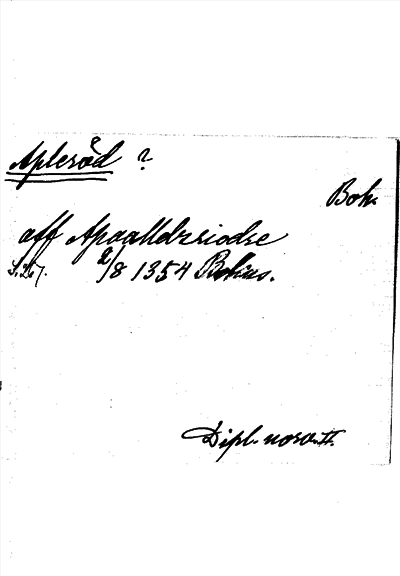 Apleröd ?
Boh.
aff Apaalldzriodze
S. 267. 2/8 1354 Bohus.
Dipl. norv. II.